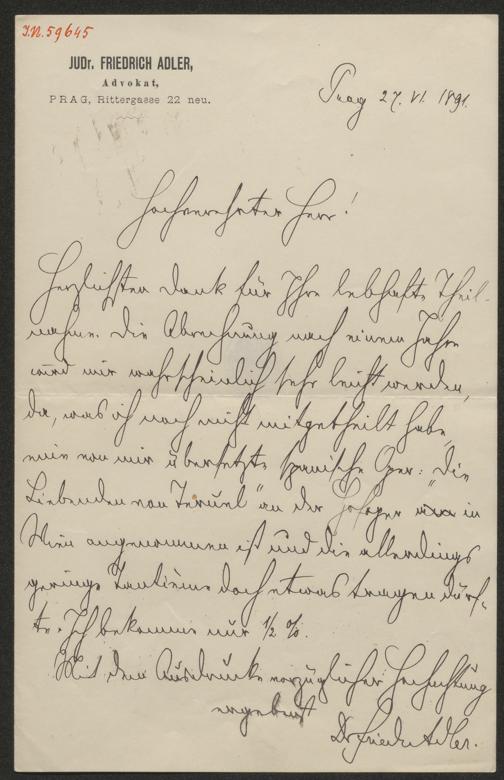 I.N. 59645
JUDr. FRIEDRICH ADLER,
Advokat,
PRAG, Rittergasse 22 neu.
Prag 27. VI. 1891.
Hochverehrter Herr!
Herzlichsten Dank für Ihre lebhafte Theil-
nahme. Die Abrechnung nach einem Jahre
wird mir wahrscheinlich sehr leicht werden,
da, was ich noch nicht mitgetheilt habe,
eine von mir übersetzte spanische Oper: "Die
Liebenden von Teruel" an der Hofoper in
Wien angenommen ist und die allerdings
geringe Tantième doch etwas tragen dürf-
te. Ich bekomme nur ½ %.
Mit dem Ausdrucke vorzüglicher Hochachtung
ergebenst
Dr Friedr Adler.